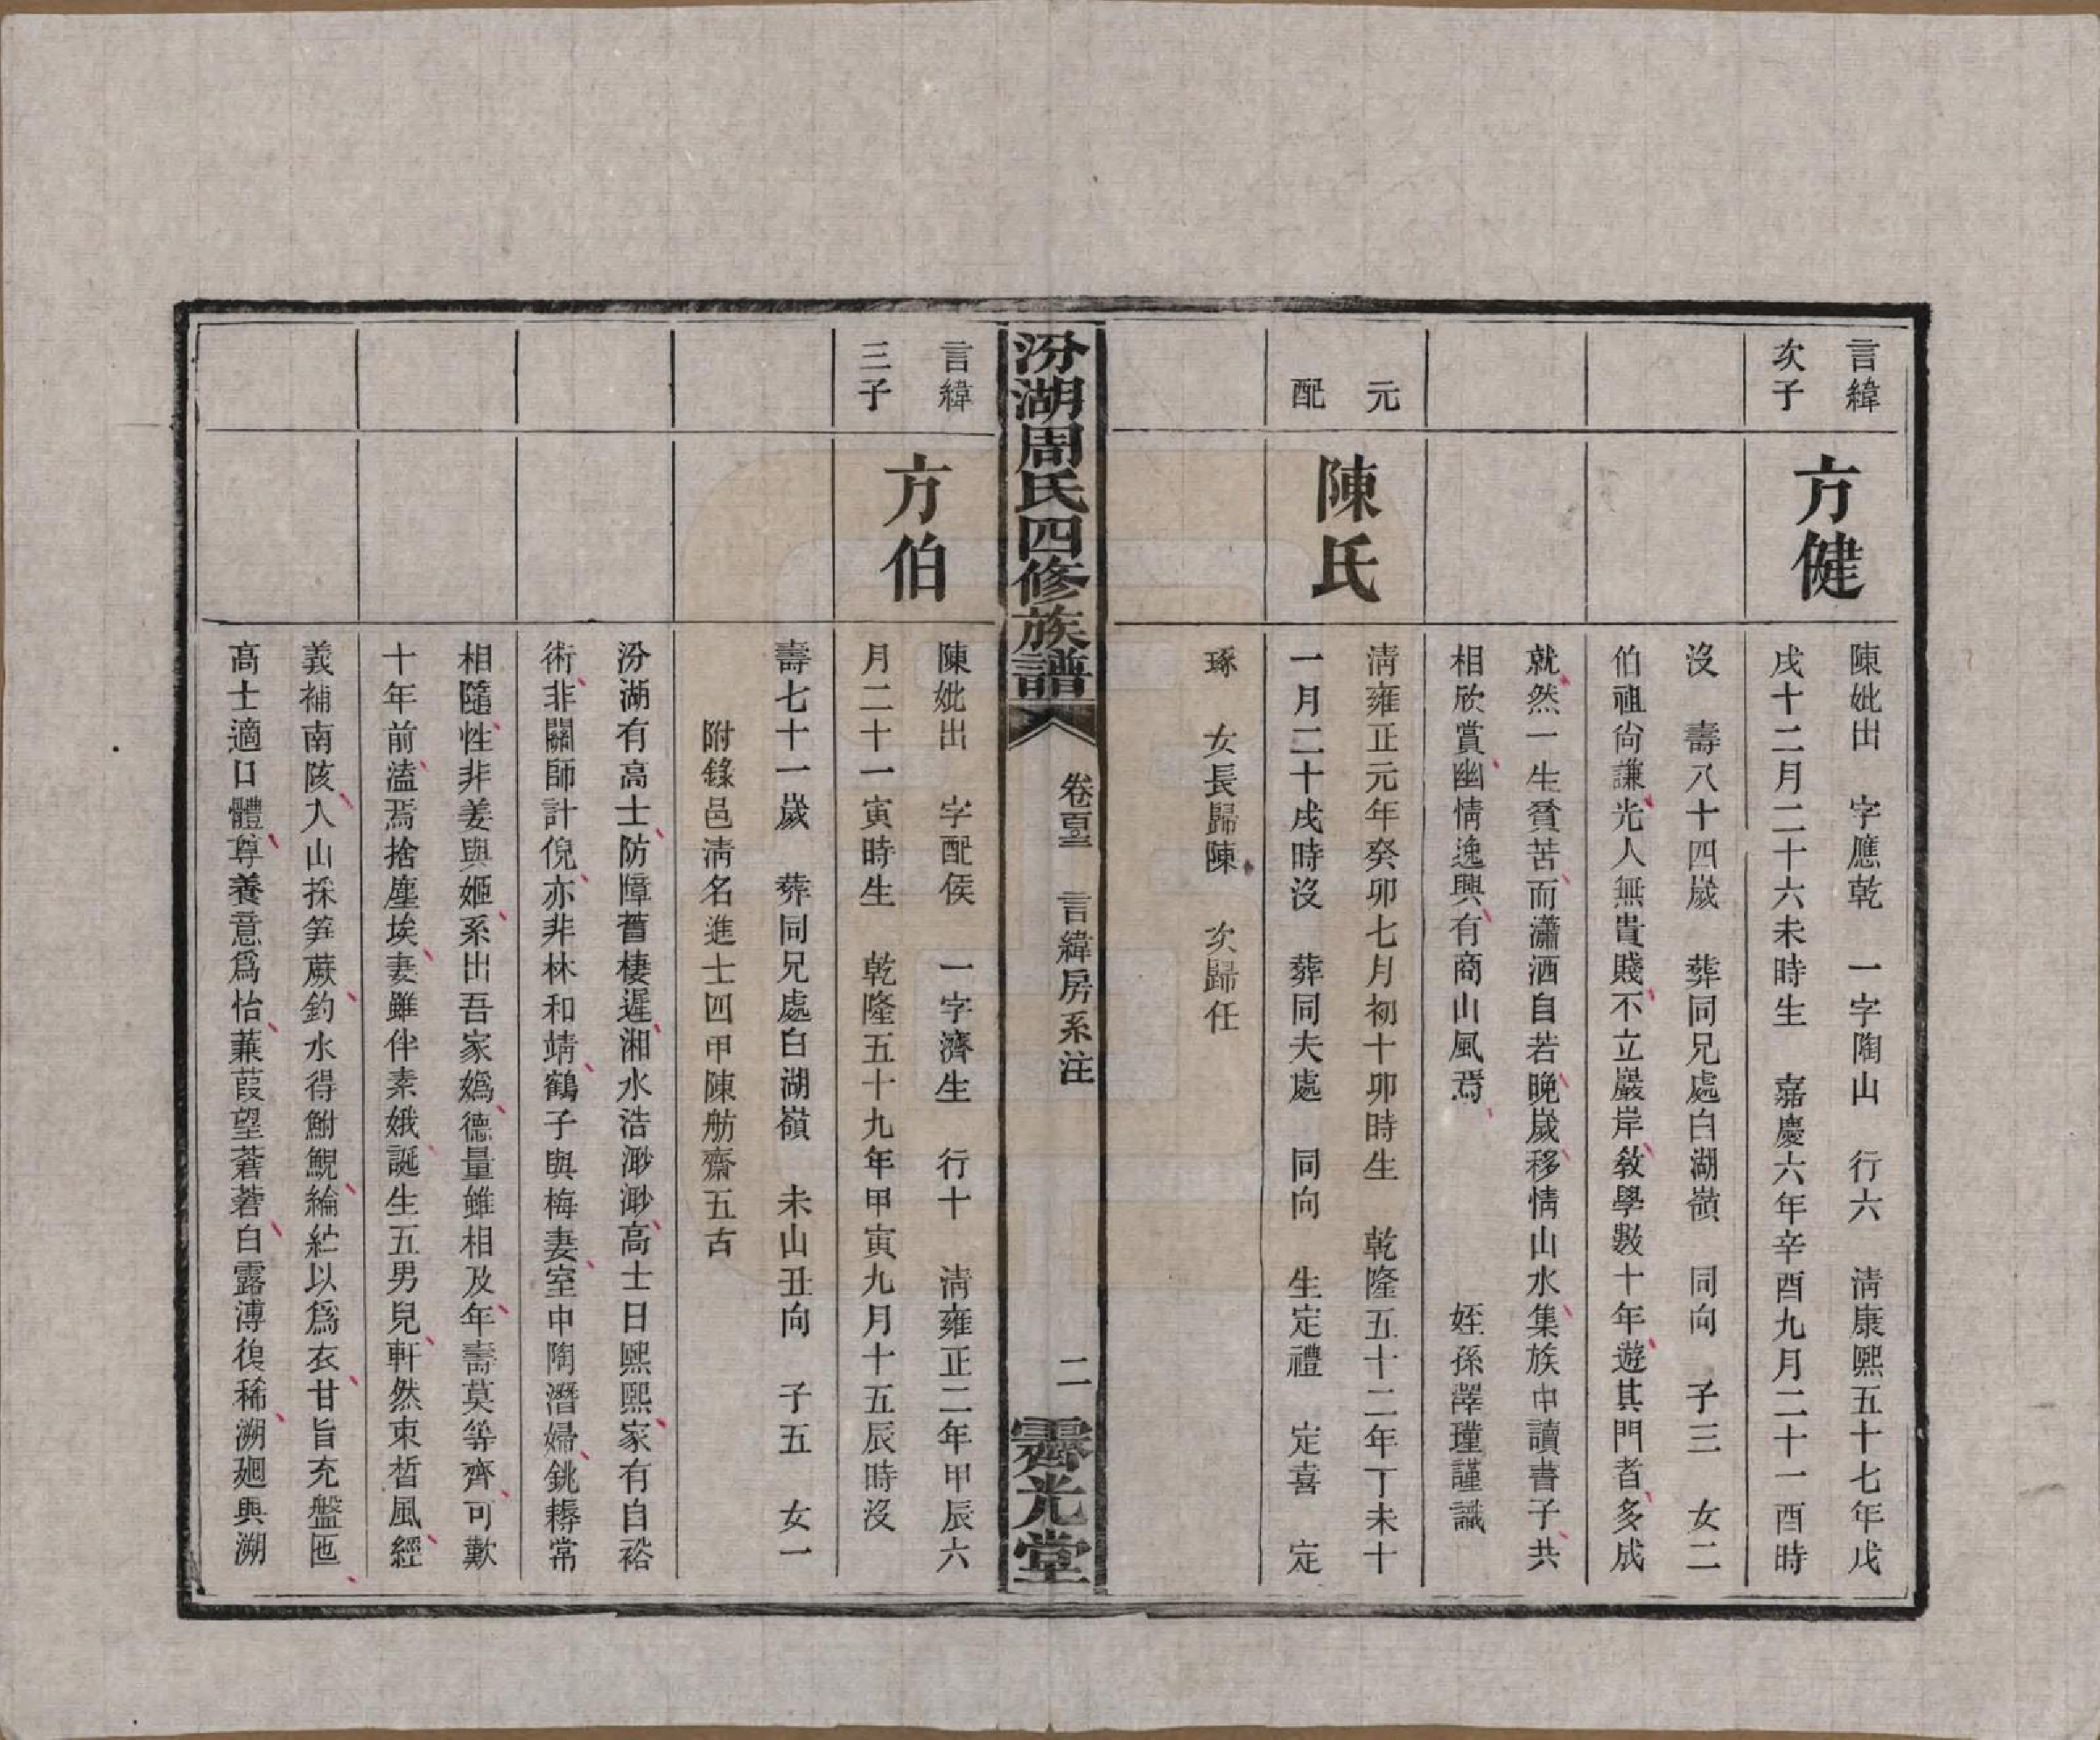 言緯
次子
方健
陳妣出　字應乾　一字陶山　行六　淸康熙五十七年戊
戌十二月二十六未時生　嘉慶六年辛酉九月二十一酉時
沒　壽八十四歲　葬同兄處白湖嶺　同向　子三　女二
伯祖尙謙光人無貴賤不立巖岸敎學數十年遊其門者多成
就然一生貧苦而瀟洒自若晚歲移情山水集族中讀書子共
相欣賞幽情逸興有商山風焉　　姪孫澤瑾謹識
元
配
陳氏
淸雍正元年癸卯七月初十卯時生　乾隆五十二年丁未十
一月二十戌時沒　葬同夫處　同向　生定禮　定喜　定
琢　女長歸陳　次歸任
汾湖周氏四修族譜
卷百三　言緯房系注
二
霽光堂
言緯
三子
方伯
陳妣出　字配侯　一字濟生　行十　淸雍正二年甲辰六
月二十一寅時生　乾隆五十九年甲寅九月十五辰時沒
壽七十一歲　葬同兄處白湖嶺　未山丑向　子五　女一
附錄邑淸名進士四甲陳舫齋五古
汾湖有高士防障舊棲遲湘水浩渺渺高士日熙熙家有自裕
術非關師計倪亦非林和靖鶴子與梅妻室中陶潛婦銚耨常
相隨性非姜與姬系出吾家嬀德量雖相及年壽莫等齊可歎
十年前溘焉捨塵埃妻雖伴素娥誕生五男兒軒然束皙風經
義補南陔入山採筍蕨釣水得鮒鯢綸紵以爲衣甘旨充盤匜
高士適口體尊養意爲怡蒹葭望蒼蒼白露溥復稀溯廻與溯